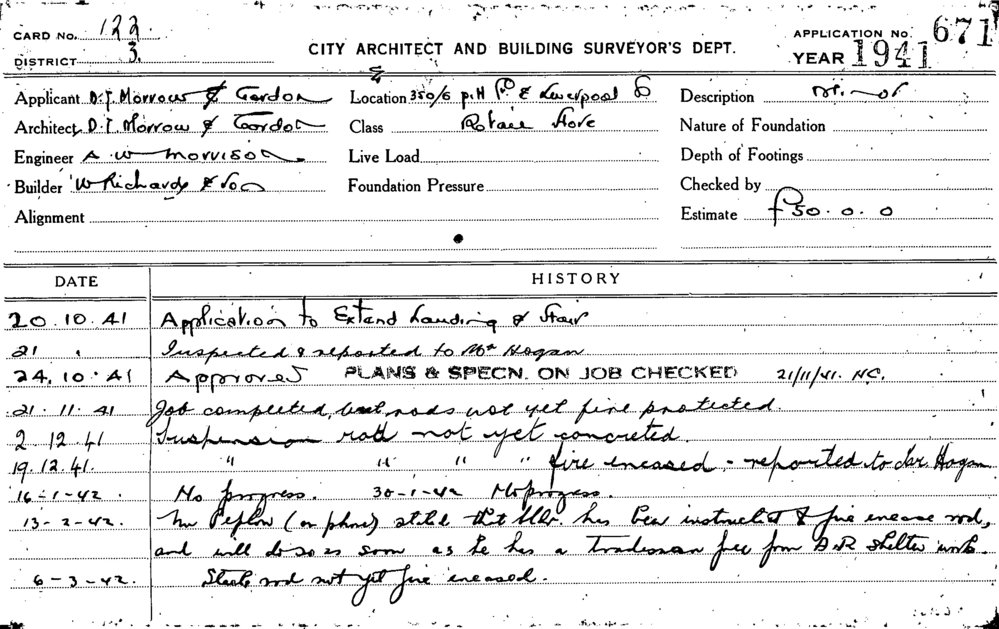 CARD NO. 122.
DISTRICT 3.
CITY ARCHITECT AND BUILDING SURVEYOR'S DEPT.
APPLICATION NO. 671
YEAR 1941
Applicant D.T. Morrow & Gordon
Location 350/6 & Liverpool
Description Minor
Architect D.T. Morrow & Gordon
Class Retail Store
Nature of Foundation
Engineer A. W Morrison
Live Load
Depth of Footings
Builder W Richards & Son
Foundation Pressure
Checked by
Alignment
Estimate £50.0.0
DATE HISTORY
20.10.41 Application to Extend Landing & Stair
21 " Inspected & reported to Mr Hogan
24.10.41 Approved PLANS & SPECN. ON JOB CHECKED 21/11/41. N.C.
21.11.41 Job completed, but rods not yet fire protected.
2.12.41 Suspension rod not yet concreted.
19.12.41. " " " " fire encased - reported to Mr. Hogan
16-1-42. No progress. 30-1-42 No progress.
13-2-42. Mr (on phone) that has been instructed to fire encase rod,
and will do so as soon as he has a tradesman free from shelter work.
6-3-42. Steel rod not yet fire encased.